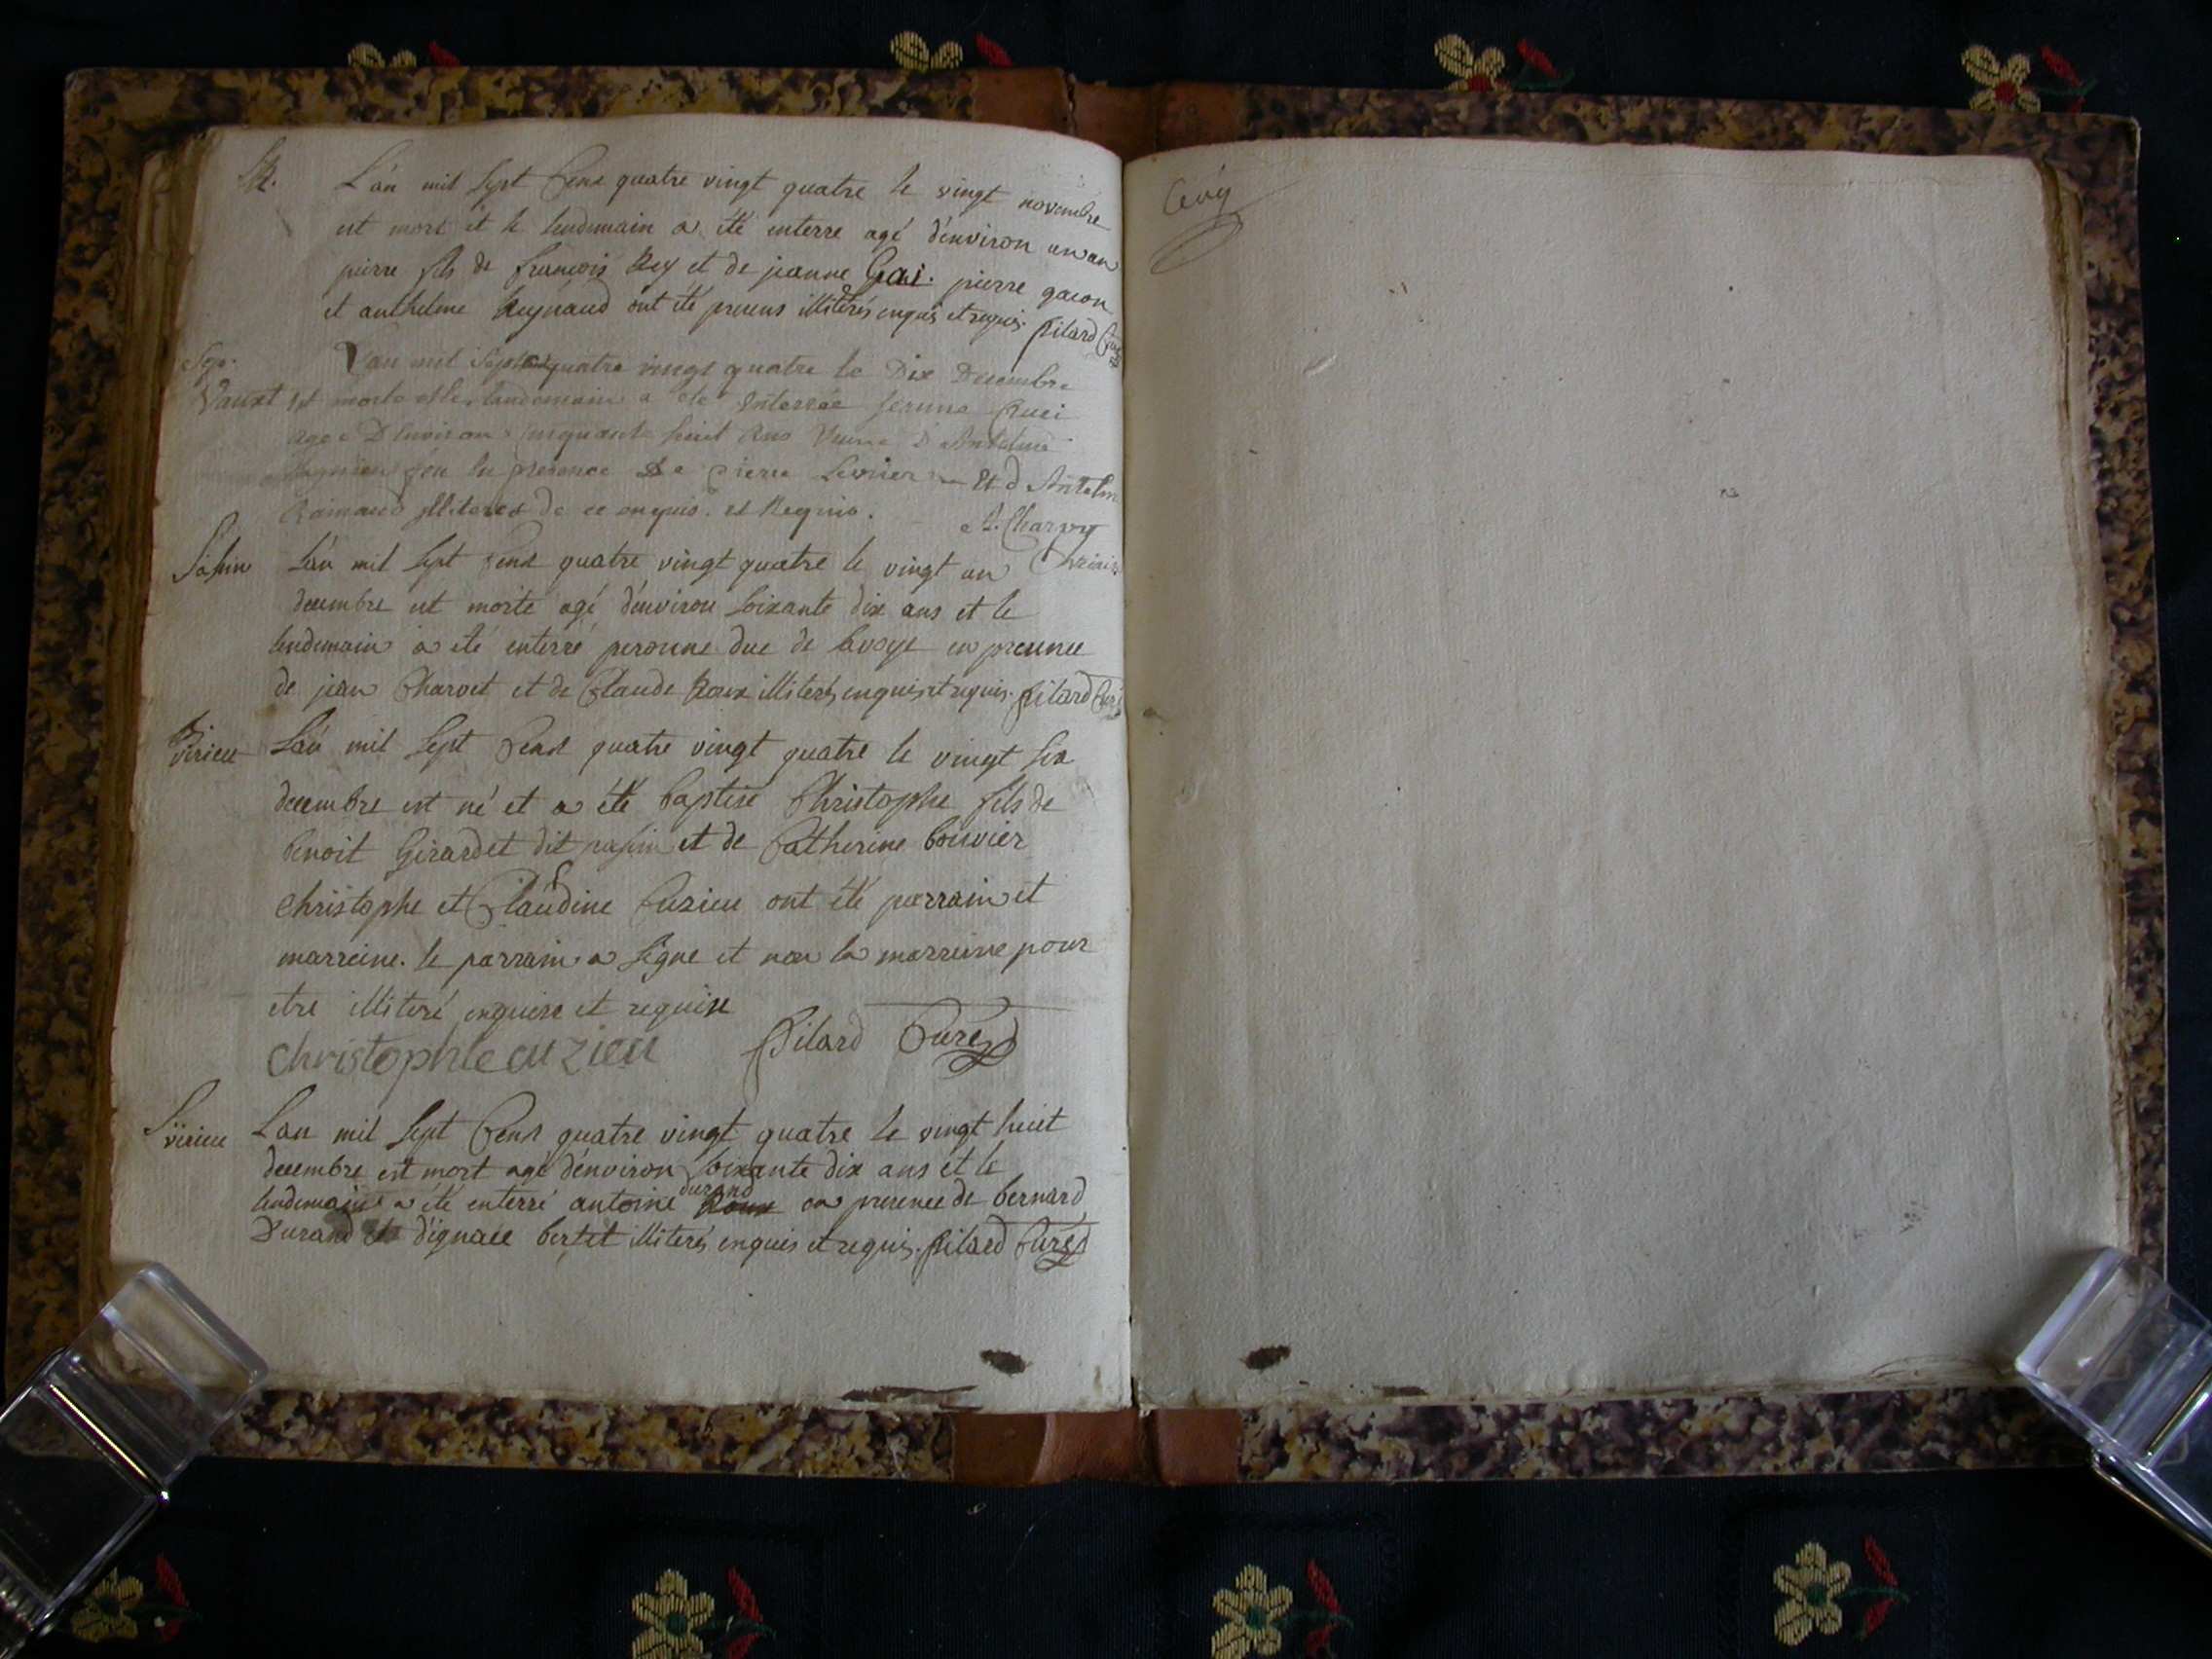 L'an mil sept Cens quatre vingt quatre le vingt novembre
est mort et le lendemain a été enterre agé d'environ un an
pierre fils de francois Rey et de jeanne Gai. pierre gacon
et anthelme Reynaud ont été presens illiterés enquis et requis. Pilard Curé
Sep. L'an mil sept cent quatre vingt quatre le Dix Decembre
est morte et le lendemain a ete Enterrée
agee D'Environ cinquante huit Ans Veuve d'Antelme
feu En presence De pierre Et d'Antelme
Rainaud illiteres de ce enquis. et Requis.
Vicaire
L'an mil sept Cens quatre vingt quatre le vingt un
decembre est morte agé d'environ soixante dix ans et le
lendemain a été enterré peronne duc de savoye en presence
de jean Charvet et de Claude Roux illiterés enquis et requis. Pilard Curé
B
virieu L'an mil sept Cens quatre vingt quatre le vingt six
decembre est né et a été baptise Christophe fils de
benoit Girardet dit et de Catherine bouvier
christophe et Claudine Cuzieu ont été parrain et
marreine. le parrain a signe et non la marreine pour
etre illiteré enquise et requise
christophle cuzieu Pilard Curé
S virieu L'an mil sept Cens quatre vingt quatre le vingt huit
decembre est mort agé d'environ soixante dix ans et le
durand
lendemain a été enterré antoine Roux en presence de bernard
Durand et d'ignace bertet illiterés enquis et requis. Pilard Curé